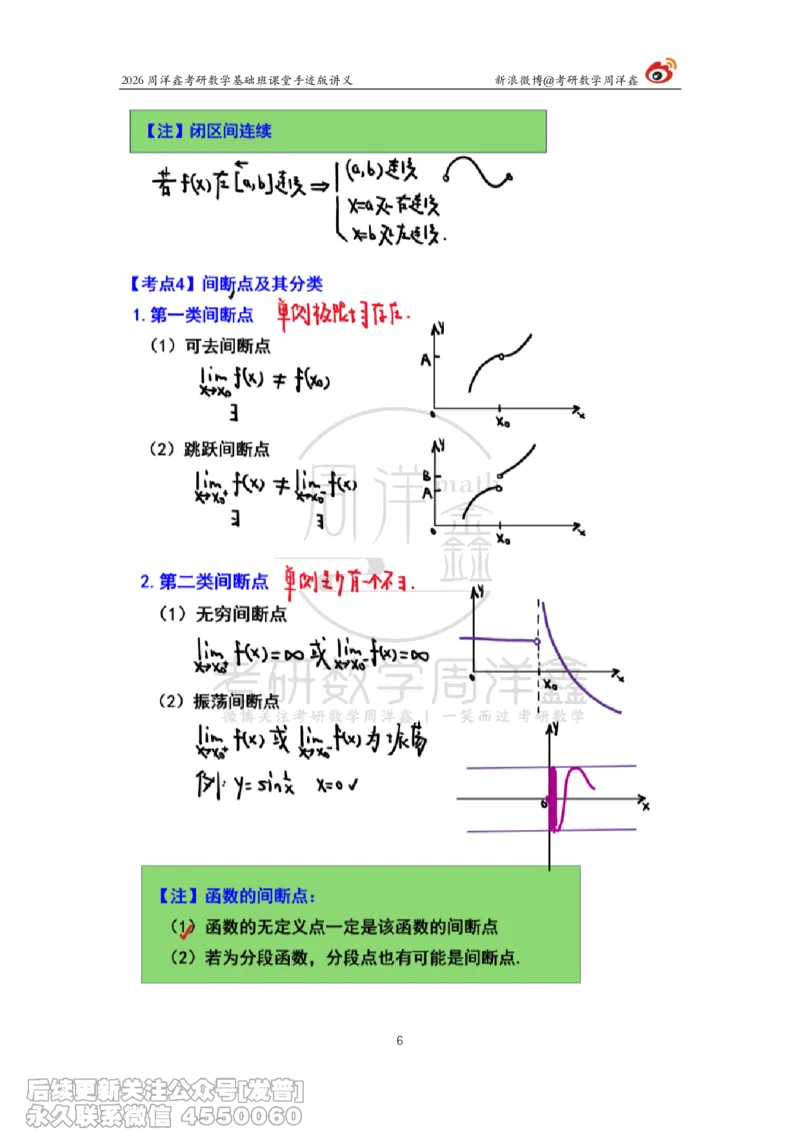 2026 周洋鑫考研数学基础班课堂手迹版讲义
新浪微博@考研数学周洋鑫
【注】闭区间连续
若 f(x) 在 [a,b] 连续 ⇒
(a,b) 连续
x=a 处右连续
x=b 处左连续.
【考点4】间断点及其分类
1. 第一类间断点 单侧极限均存在.
（1）可去间断点
lim x→x₀ f(x) ≠ f(x₀)
∃
y
A
0
x₀
x
（2）跳跃间断点
lim x→x₀⁺ f(x) ≠ lim x→x₀⁻ f(x)
∃ ∃
y
B
A
0
x₀
x
周洋鑫
math
2. 第二类间断点 单侧至少有一个不∃.
（1）无穷间断点
lim x→x₀⁺ f(x)=∞ 或 lim x→x₀⁻ f(x)=∞
y
0
x₀
x
考研数学周洋鑫
（2）振荡间断点
微博关注考研数学周洋鑫 | 一笑而过 考研数学
lim x→x₀⁺ f(x) 或 lim x→x₀⁻ f(x) 为振荡
例: y=sin 1/x x=0 ✓
y
0
x
【注】函数的间断点：
（1）函数的无定义点一定是该函数的间断点
（2）若为分段函数，分段点也有可能是间断点.
6
后续更新关注公众号[发普]
永久联系微信 4550060